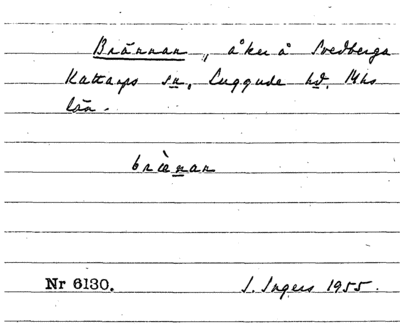 Brännan, åker å Svedberga
Kattarps sn, Luggude hd. Mhs
län.
bræ̀nan
Nr 6130. I. Ingers 1955.